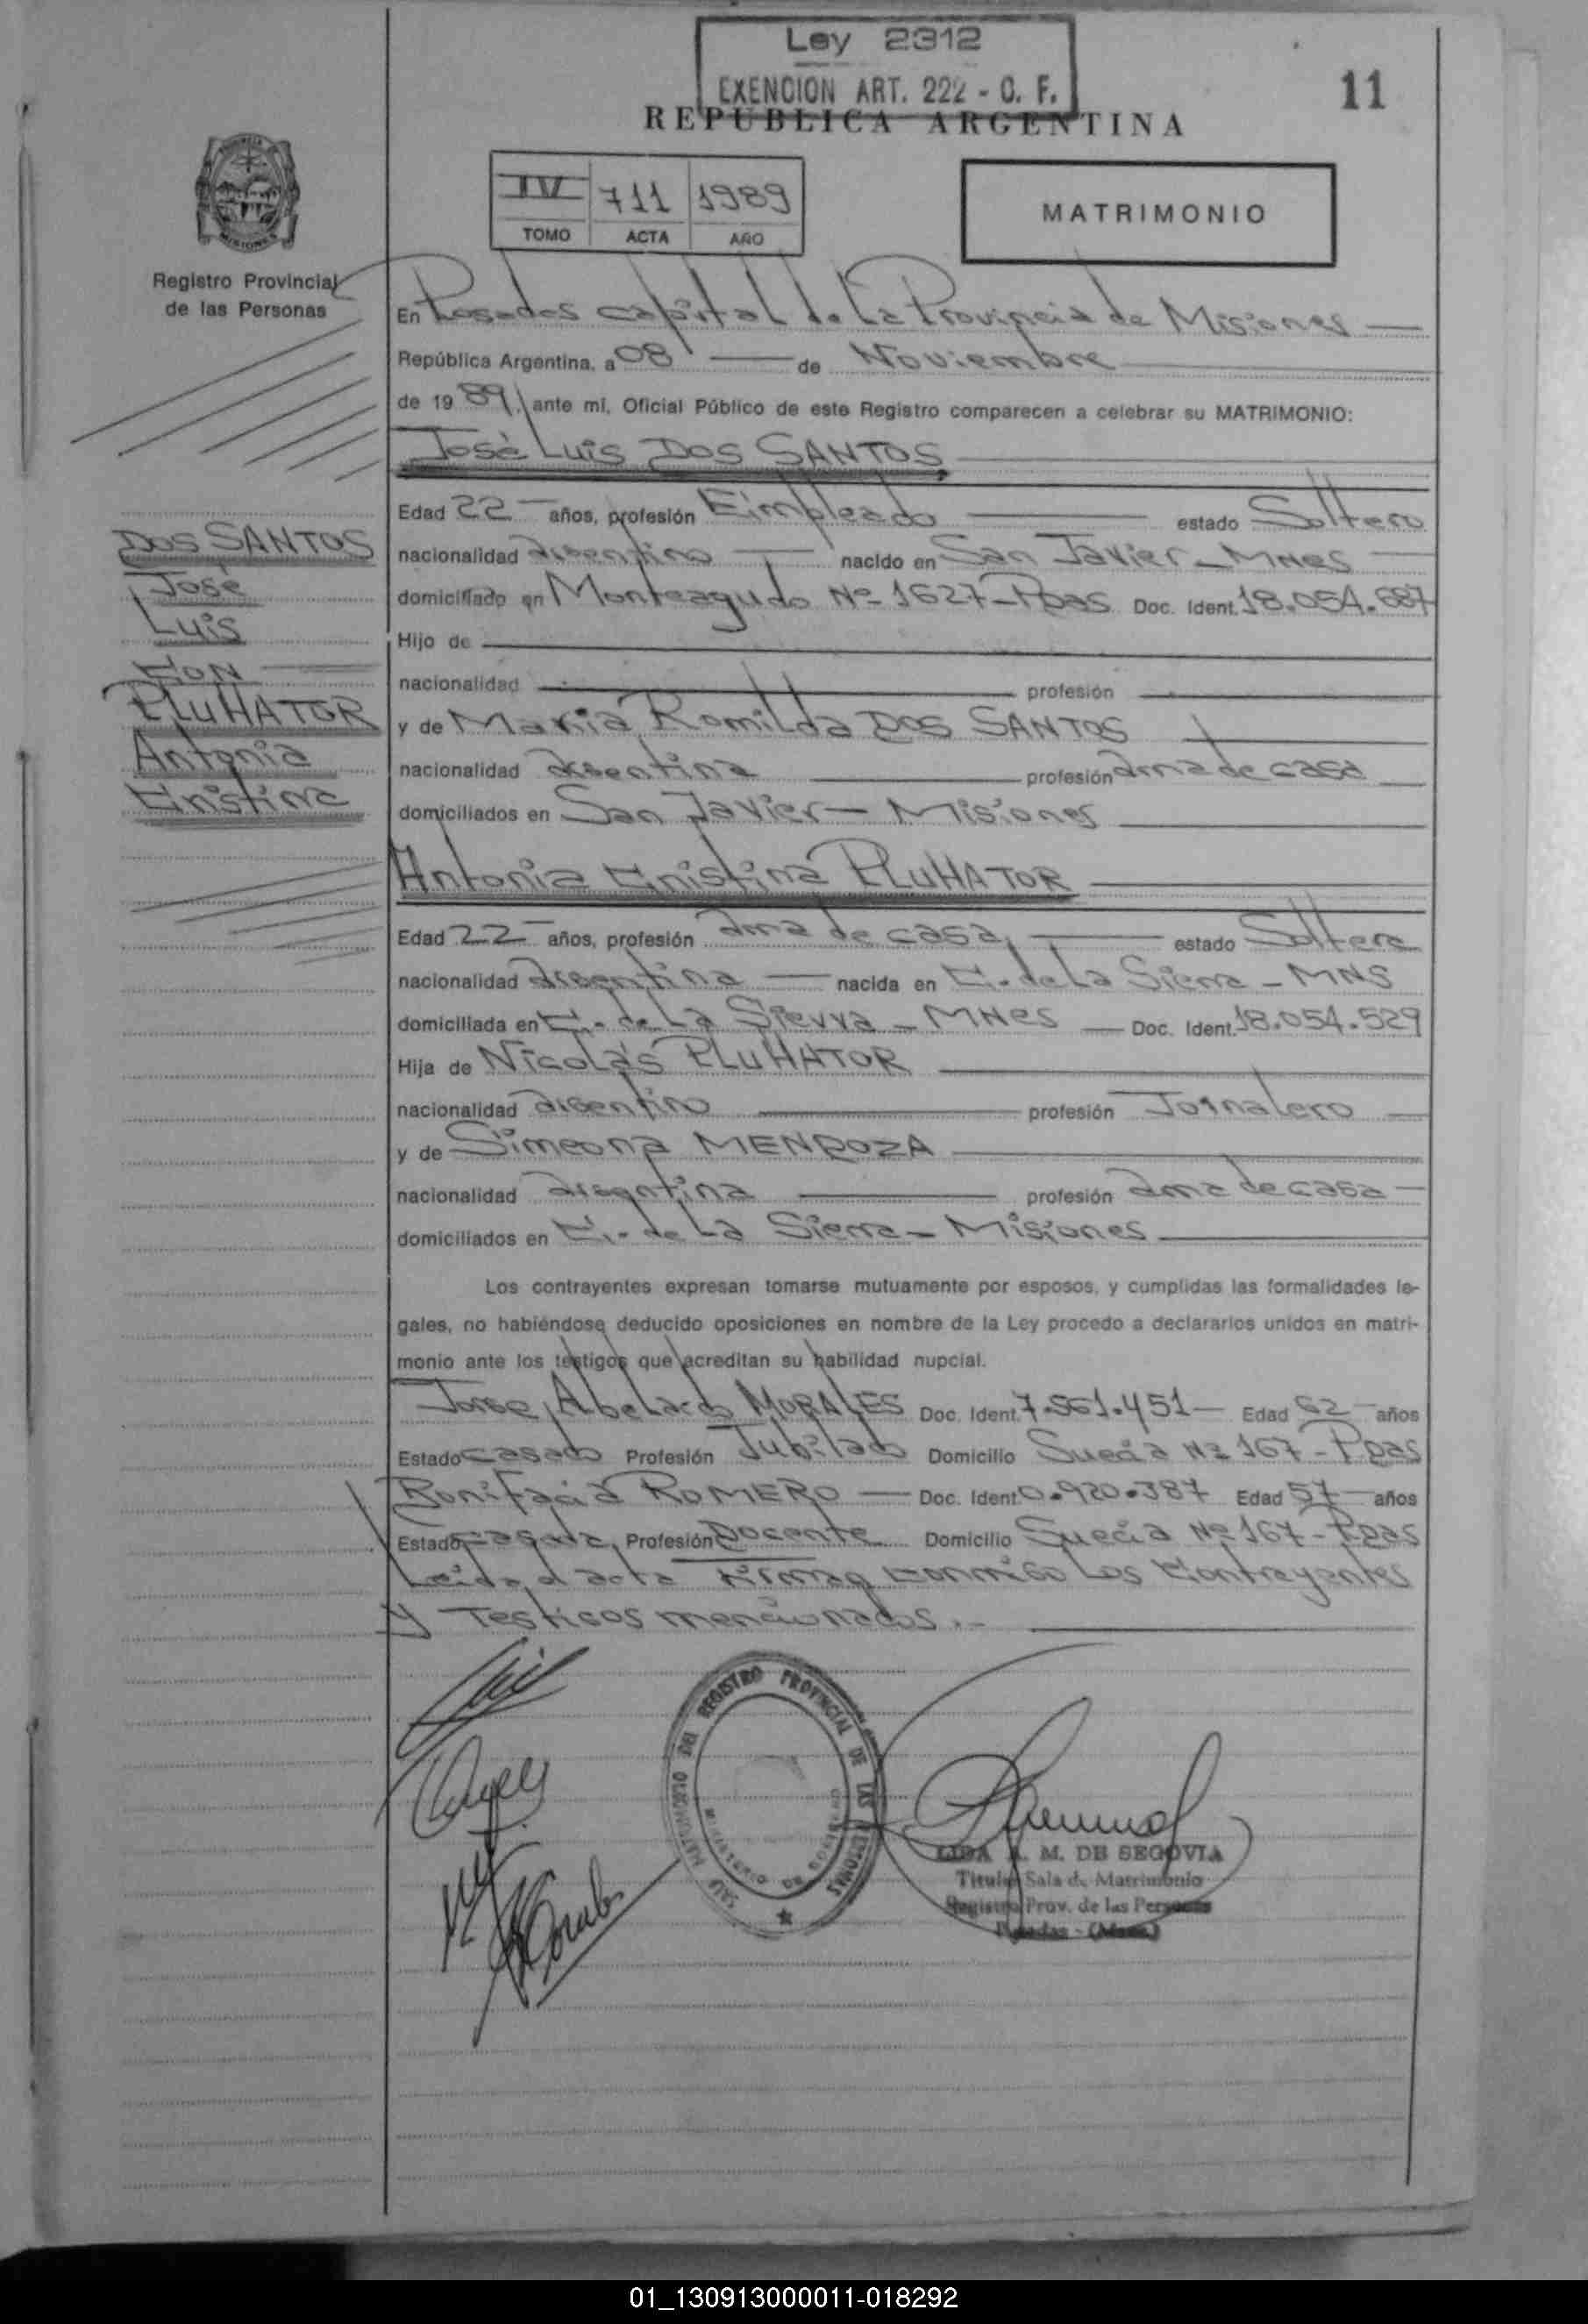 Ley 2312
EXENCION ART. 222 - C. F.
11
REPUBLICA ARGENTINA
IV 711 1989
TOMO ACTA AÑO
MATRIMONIO
Registro Provincial
de las Personas
En Posadas capital de la Provincia de Misiones
República Argentina, a 08 de Noviembre
de 1989, ante mí, Oficial Público de este Registro comparecen a celebrar su MATRIMONIO:
José Luis DOS SANTOS
Edad 22 años, profesión Empleado estado Soltero
DOS SANTOS
José
Luis
CON
PLUHATOR
Antonia
Cristina
nacionalidad argentino nacido en San Javier - Mnes
domiciliado en Monteagudo Nº 1627 - Pdas Doc. Ident. 18.054.687
Hijo de
nacionalidad profesión
y de Maria Romilda DOS SANTOS
nacionalidad argentina profesión ama de casa
domiciliados en San Javier - Misiones
Antonia Cristina PLUHATOR
Edad 22 años, profesión ama de casa, estado Soltera
nacionalidad argentina nacida en C. de la Sierra - MNS
domiciliada en C. de la Sierra - Mnes Doc. Ident. 18.054.529
Hija de Nicolás PLUHATOR
nacionalidad argentino profesión Jornalero
y de Simeona MENDOZA
nacionalidad argentina profesión ama de casa
domiciliados en C. de la Sierra - Misiones
Los contrayentes expresan tomarse mutuamente por esposos, y cumplidas las formalidades le-
gales, no habiéndose deducido oposiciones en nombre de la Ley procedo a declararlos unidos en matri-
monio ante los testigos que acreditan su habilidad nupcial.
Jorge Abelardo MORALES Doc. Ident. 7.561.451 Edad 62 años
Estado casado Profesión Jubilado Domicilio Suecia Nº 167 - Pdas
Bonifacia ROMERO Doc. Ident. 0.920.387 Edad 57 años
Estado casada, Profesión Docente Domicilio Suecia Nº 167 - Pdas
Leida el acta firman conmigo los contrayentes
y testigos mencionados.-
SALA MATRIMONIO DEL REGISTRO PROVINCIAL DE LAS PERSONAS
MINISTERIO DE GOBIERNO
LIDA A. M. DE SEGOVIA
Titular Sala de Matrimonio
Registro Prov. de las Personas
Posadas - (Mnes.)
01_130913000011-018292